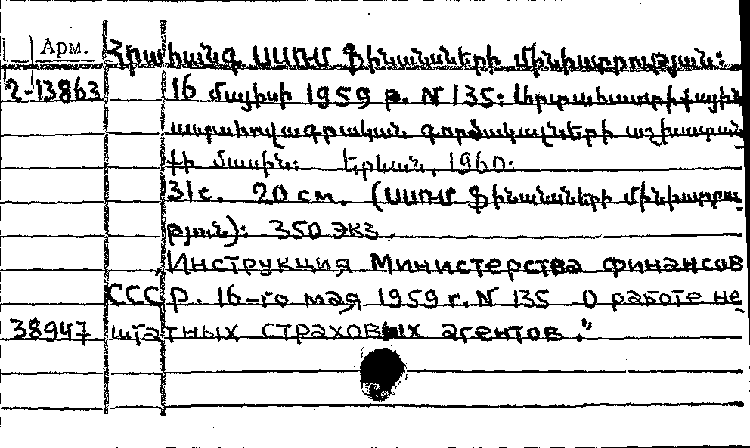 Арм. Հրահանգ ՍՍՌՄ ֆինանսների մինիստրության:
2-13863 16 մայիսի 1959 թ. N 135:
ապահովագրական գործակալների աշխատան
քի մասին: Երևան, 1960.
31с. 20 см. (ՍՍՌՄ ֆինանսների մինիստրու
թյուն): 350 экз.
„Инструкция Министерства финансов
СССР. 16-го мая 1959 г. N 135 О работе не
38947 штатных страховых агентов.“